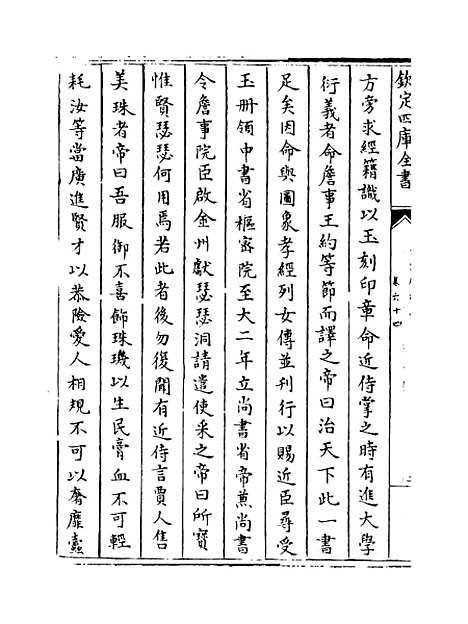 欽定四庫全書
卷六十四
方旁求經籍識以玉刻印章命近侍掌之時有進大學
衍義者命詹事王約等節而譯之帝曰治天下此一書
足矣因命與圖象孝經列女傳並刊行以賜近臣尋受
玉册領中書省樞宻院至大二年立尚書省帝兼尚書
令詹事院臣啟金州獻瑟瑟洞請遣使采之帝曰所寳
惟賢瑟瑟何用焉若此者後勿復聞有近侍言賈人售
美珠者帝曰吾服御不喜飾珠璣以生民膏血不可輕
耗汝等當廣進賢才以恭險愛人相規不可以奢靡蠧